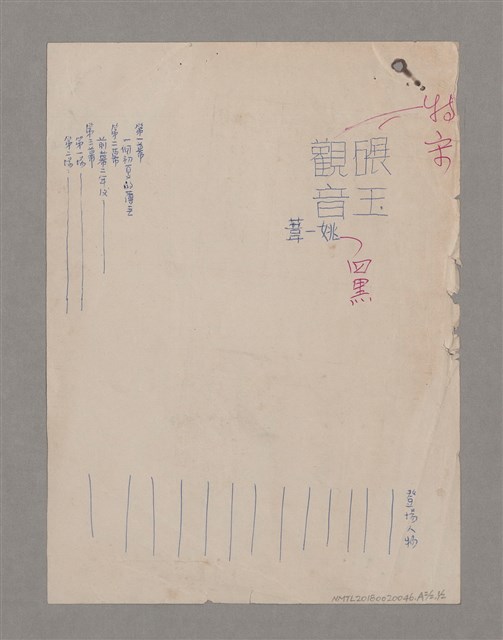 特宋
碾玉
觀音
姚一葦
四黑
登場人物
第一幕
一個初
第二幕
前幕二年後
第三幕
第一場
第二場
NMTL20180020046